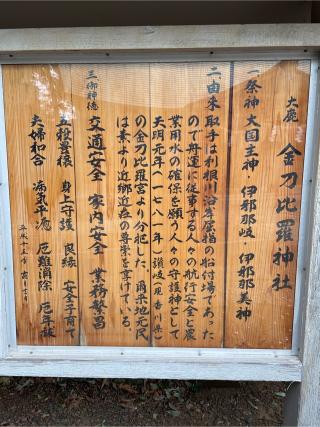 大鹿 金刀比羅神社
一祭神 大国主神・伊邪那岐・伊邪那美神
二由来 取手は利根川沿岸屈指の船付場であった
ので舟運に従事する人々の航行安全と農
業用水の確保を願う人々の守護神として
天明元年(一七八一年)讃岐(現香川県)
の金刀比羅宮より分祀した。爾来地元民
は素より近郷近在の尊崇を享けている。
三御神徳
交通安全 家内安全 業務繁昌
五穀豊穣 身上守護 良縁 安全子育て
夫婦和合 病気平癒 厄難消除 厄年祓
平成十五年